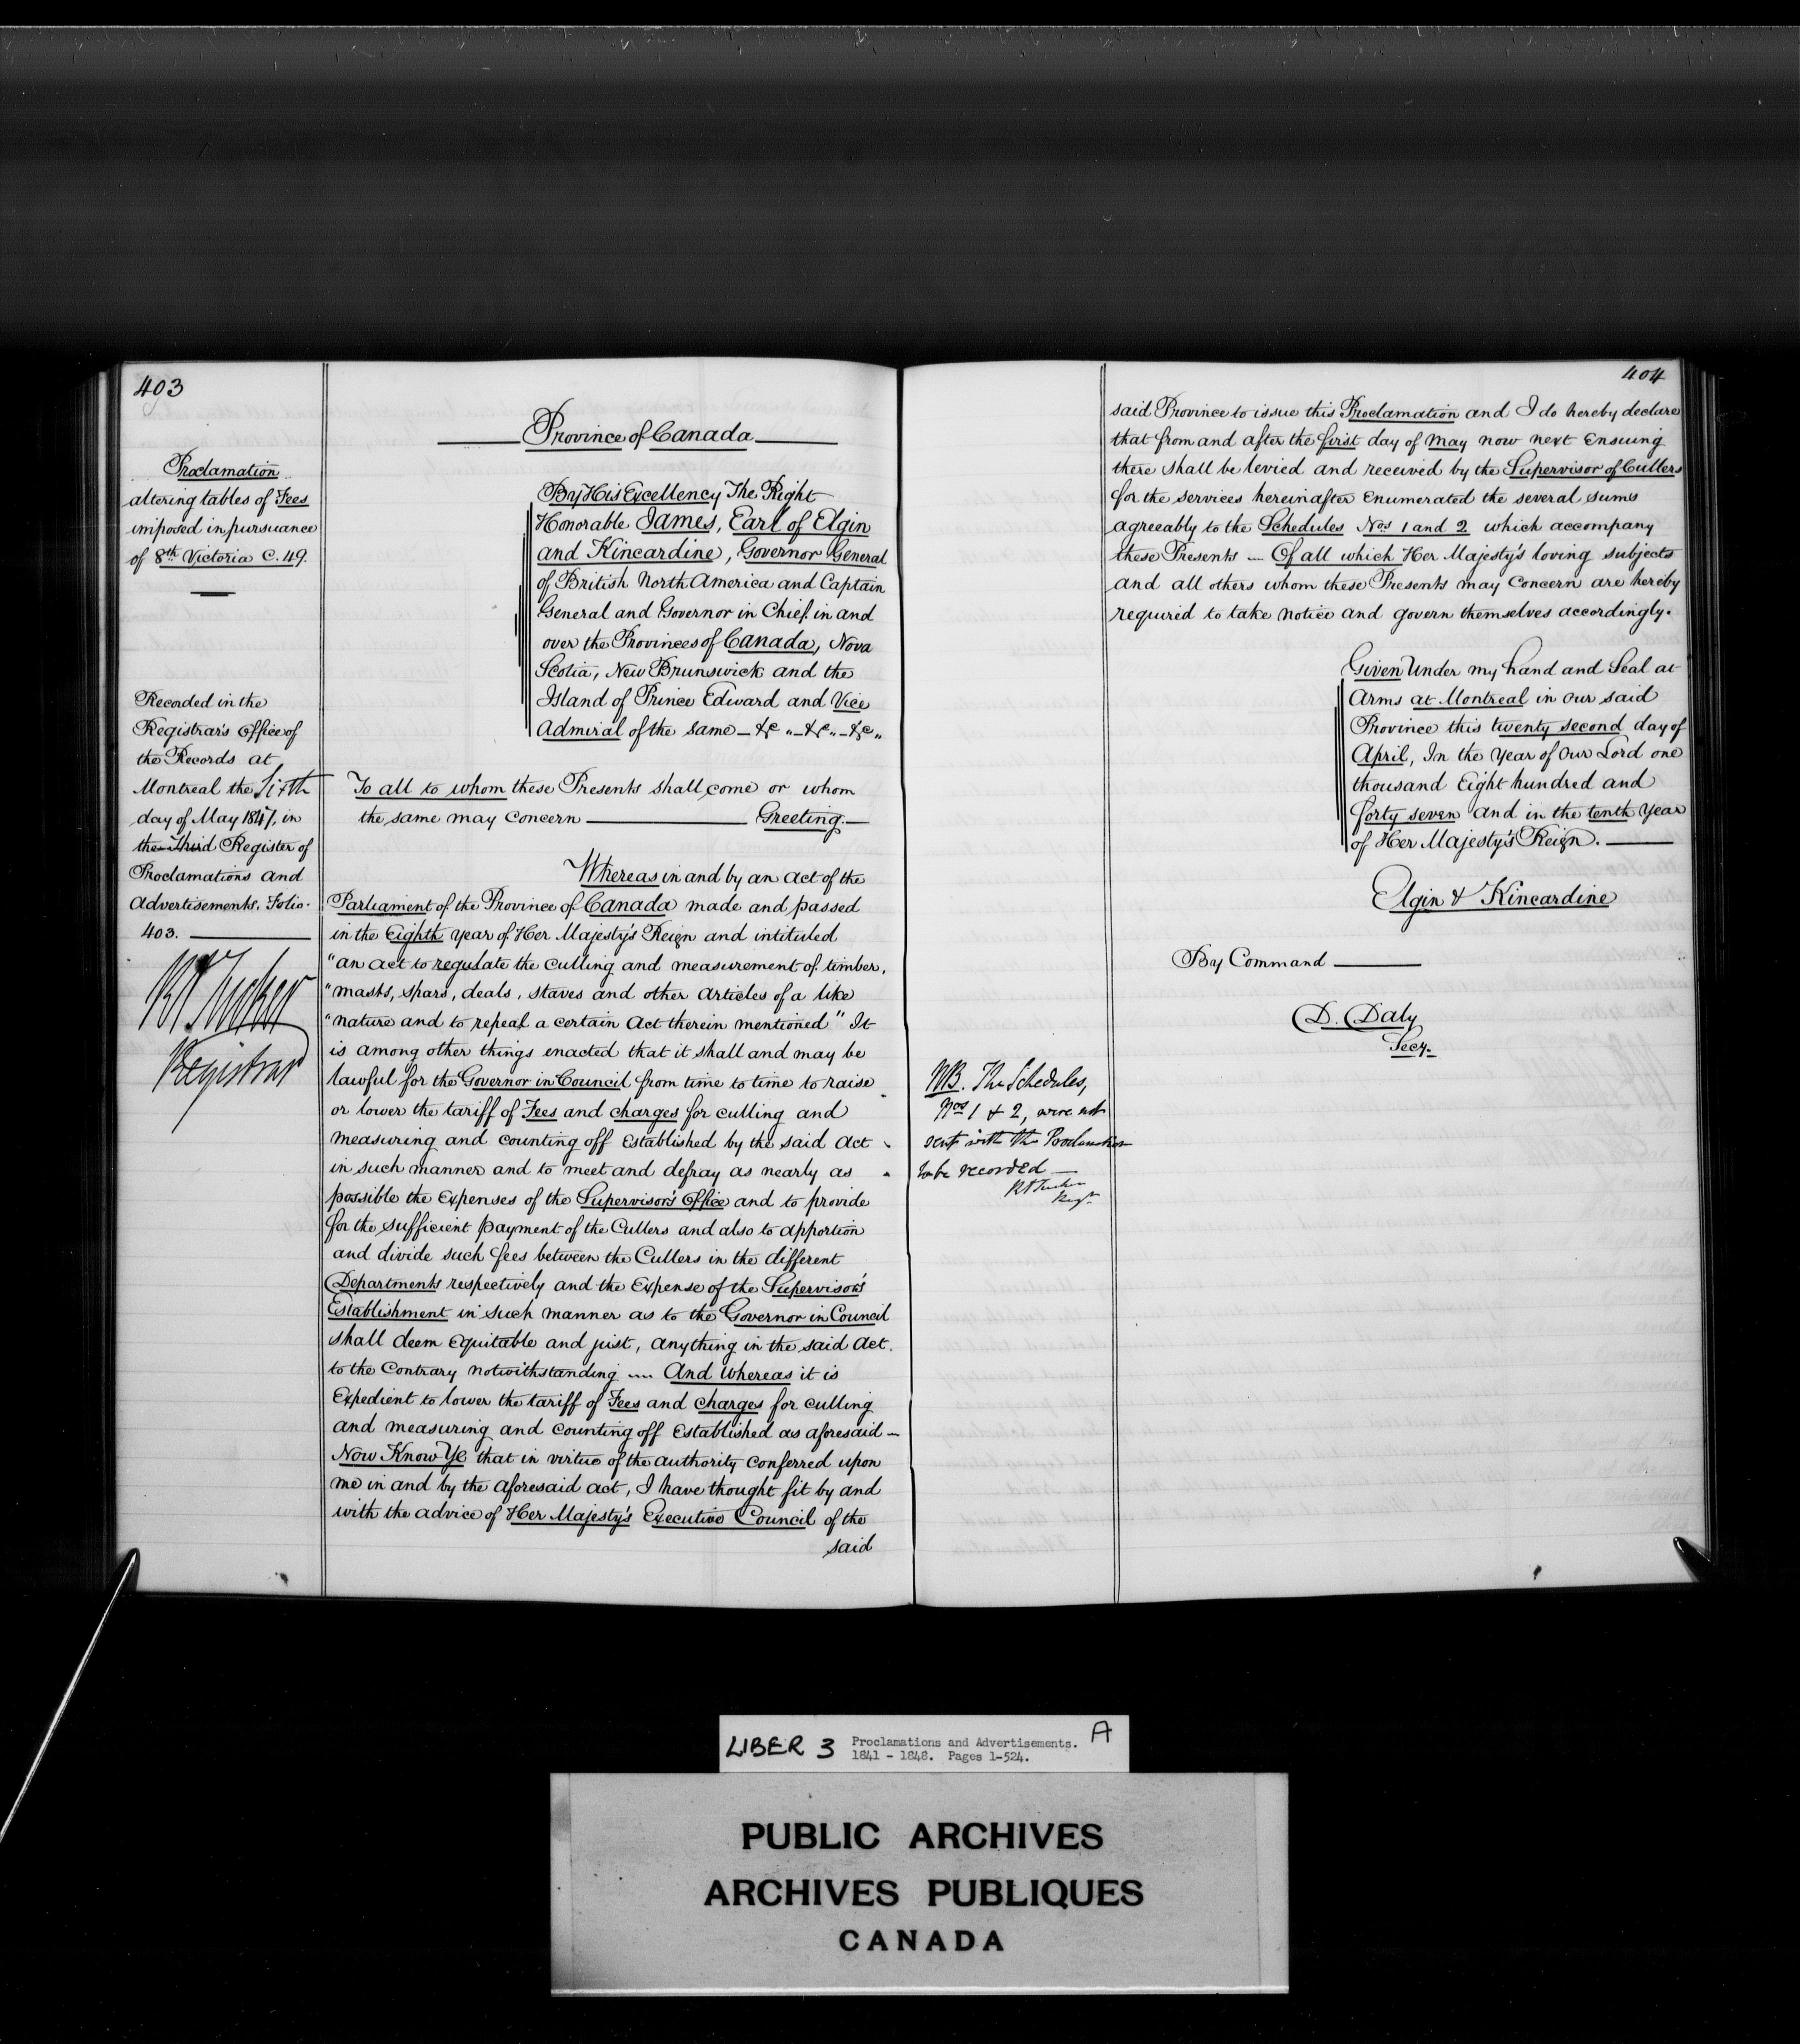 403
Proclamation
altering tables of Fees
imposed in pursuance
of 8th Victoria C. 49.
Recorded in the
Registrar's Office of
the Records at
Montreal the Sixth
day of May 1847, in
the Third Register of
Proclamations and
Advertisements. Folio.
403.
R A Tucker
Registrar
Province of Canada
By His Excellency The Right
Honorable James, Earl of Elgin
and Kincardine, Governor General
of British North America and Captain
General and Governor in Chief in and
over the Provinces of Canada, Nova
Scotia, New Brunswick and the
Island of Prince Edward and Vice
Admiral of the same — &c „ — &c „ — &c „
To all to whom these Presents shall come or whom
the same may Concern — Greeting. —
Whereas in and by an act of the
Parliament of the Province of Canada made and passed
in the Eighth year of Her Majesty's Reign and intituled
"an act to regulate the culling and measurement of timber,
"masts, spars, deals, staves and other articles of a like
"nature and to repeal a certain Act therein mentioned" It
is among other things enacted that it shall and may be
lawful for the Governor in Council from time to time to raise
or lower the tariff of Fees and charges for culling and
measuring and counting off Established by the said Act
in such manner and to meet and defray as nearly as
possible the Expenses of the Supervisor's Office and to provide
for the sufficient payment of the Cullers and also to apportion
and divide such fees between the Cullers in the different
Departments respectively and the Expense of the Supervisor's
Establishment in such manner as to the Governor in Council
shall deem equitable and just, anything in the said Act
to the Contrary notwithstanding — And Whereas it is
Expedient to lower the tariff of Fees and charges for culling
and measuring and counting off Established as aforesaid —
Now Know Ye that in virtue of the authority conferred upon
me in and by the aforesaid act, I have thought fit by and
with the advice of Her Majesty's Executive Council of the
said
404
said Province to issue this Proclamation and I do hereby declare
that from and after the first day of May now next Ensuing
there shall be levied and received by the Supervisor of Cullers
for the services hereinafter Enumerated the several sums
agreeably to the Schedules Nos 1 and 2 which accompany
these Presents — Of all which Her Majesty's loving subjects
and all others whom these Presents may Concern are hereby
required to take notice and govern themselves accordingly.
Given Under my hand and Seal at
Arms at Montreal in our said
Province this twenty second day of
April, In the Year of Our Lord one
thousand Eight hundred and
forty seven and in the tenth Year
of Her Majesty's Reign. —
Elgin & Kincardine
By Command —
D. Daly
Secy.
NB. The Schedules,
Nos 1 & 2, were not
sent with the Proclamation
to be recorded —
R A Tucker
Regr
LIBER 3 Proclamations and Advertisements. A
1841 - 1848. Pages 1-524.
PUBLIC ARCHIVES
ARCHIVES PUBLIQUES
CANADA